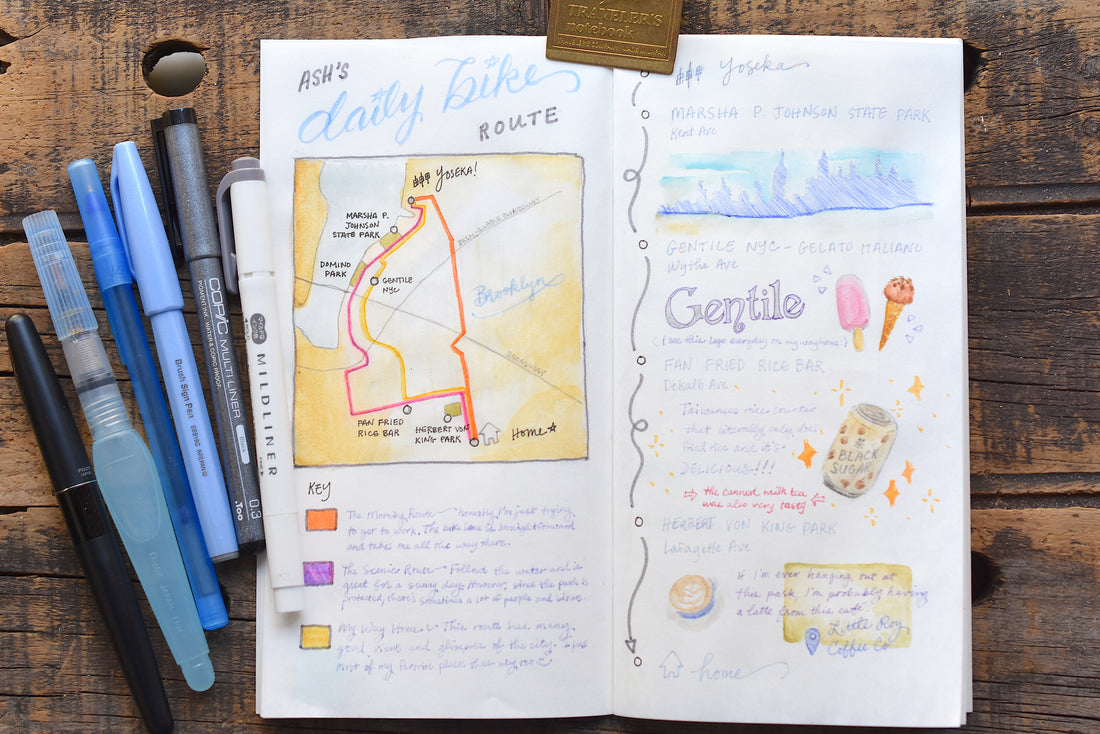 TRAVELER'S
notebook
ASH'S
daily bike
ROUTE
YOSEKA!
MARSHA P.
JOHNSON
STATE PARK
DOMINO
PARK
GENTILE
NYC
Brooklyn
BROADWAY
FAN FRIED
RICE BAR
HERBERT VON
KING PARK
Home
KEY
The Morning Route - honestly I'm just trying
to get to work. The bike lane is straightforward
and takes me all the way there.
The Scenic Route - Follows the water and is
great for a sunny day. However, since the park is
protected, there's sometimes a lot of people and bikes.
My Way Home - This route has many
good views and glimpses of the city. I pass
most of my favorite places this way too
Yoseka
MARSHA P. JOHNSON STATE PARK
Kent Ave
GENTILE NYC - GELATO ITALIANO
Wythe Ave
Gentile
(I see this logo everyday on my way home.)
FAN FRIED RICE BAR
Dekalb Ave
Taiwanese rice counter
that literally only does
fried rice and it's
DELICIOUS!!!
BLACK
SUGAR
the canned milk tea
was also very tasty
HERBERT VON KING PARK
Lafayette Ave
If I'm ever hanging out at
this park, I'm probably having
a latte from this cafe!
Little Roy
Coffee Co
home
PILOT
Brush Sign Pen SES15C
COPIC MULTI LINER
PIGMENT INK, WATER & COPIC PROOF
Black
03
.Too
MILDLINER